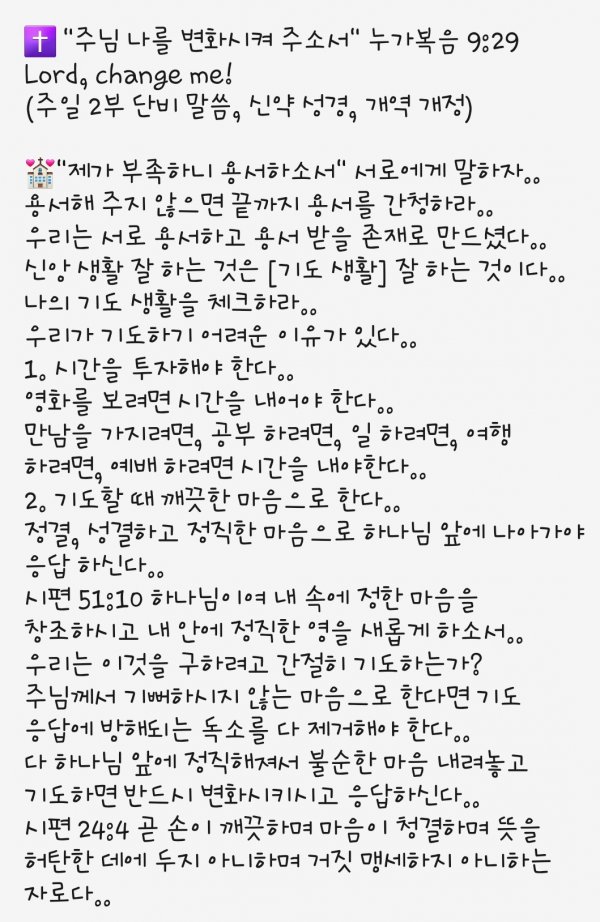 ✝️ "주님 나를 변화시켜 주소서" 누가복음 9:29
Lord, change me!
(주일 2부 단비 말씀, 신약 성경, 개역 개정)
💒"제가 부족하니 용서하소서" 서로에게 말하자..
용서해 주지 않으면 끝까지 용서를 간청하라..
우리는 서로 용서하고 용서 받을 존재로 만드셨다..
신앙 생활 잘 하는 것은 [기도 생활] 잘 하는 것이다..
나의 기도 생활을 체크하라..
우리가 기도하기 어려운 이유가 있다..
1. 시간을 투자해야 한다..
영화를 보려면 시간을 내어야 한다..
만남을 가지려면, 공부 하려면, 일 하려면, 여행
하려면, 예배 하려면 시간을 내야한다..
2. 기도할 때 깨끗한 마음으로 한다..
정결, 성결하고 정직한 마음으로 하나님 앞에 나아가야
응답 하신다..
시편 51:10 하나님이여 내 속에 정한 마음을
창조하시고 내 안에 정직한 영을 새롭게 하소서..
우리는 이것을 구하려고 간절히 기도하는가?
주님께서 기뻐하시지 않는 마음으로 한다면 기도
응답에 방해되는 독소를 다 제거해야 한다..
다 하나님 앞에 정직해져서 불순한 마음 내려놓고
기도하면 반드시 변화시키시고 응답하신다..
시편 24:4 곧 손이 깨끗하며 마음이 청결하며 뜻을
허탄한 데에 두지 아니하며 거짓 맹세하지 아니하는
자로다..